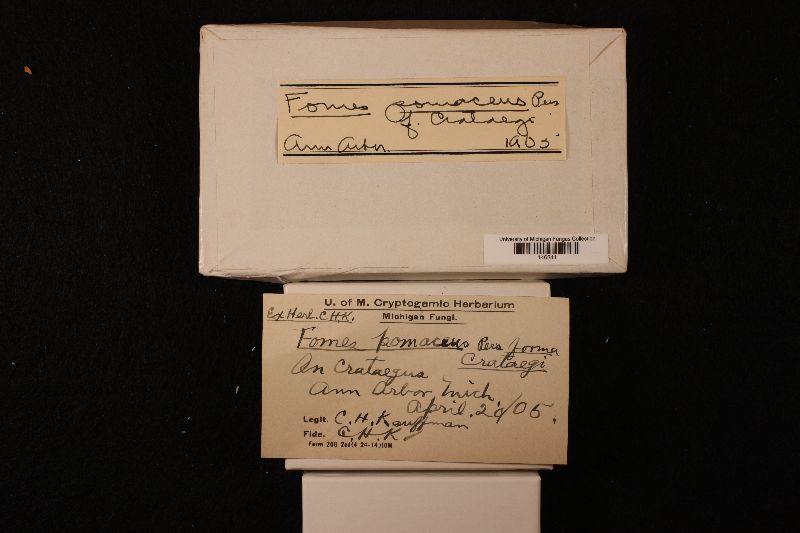 Fomes pomaceus Pers
f. Crataegi
Ann Arbor. 1905
University of Michigan Fungus Collection
U. of M. Cryptogamic Herbarium
Ex Herb. C.H.K.
Michigan Fungi.
Fomes pomaceus Pers forma
Crataegi
On Crataegus
Ann Arbor, Mich.
April. 20/05.
Legit. C. H. Kauffman
Fide. C. H. K